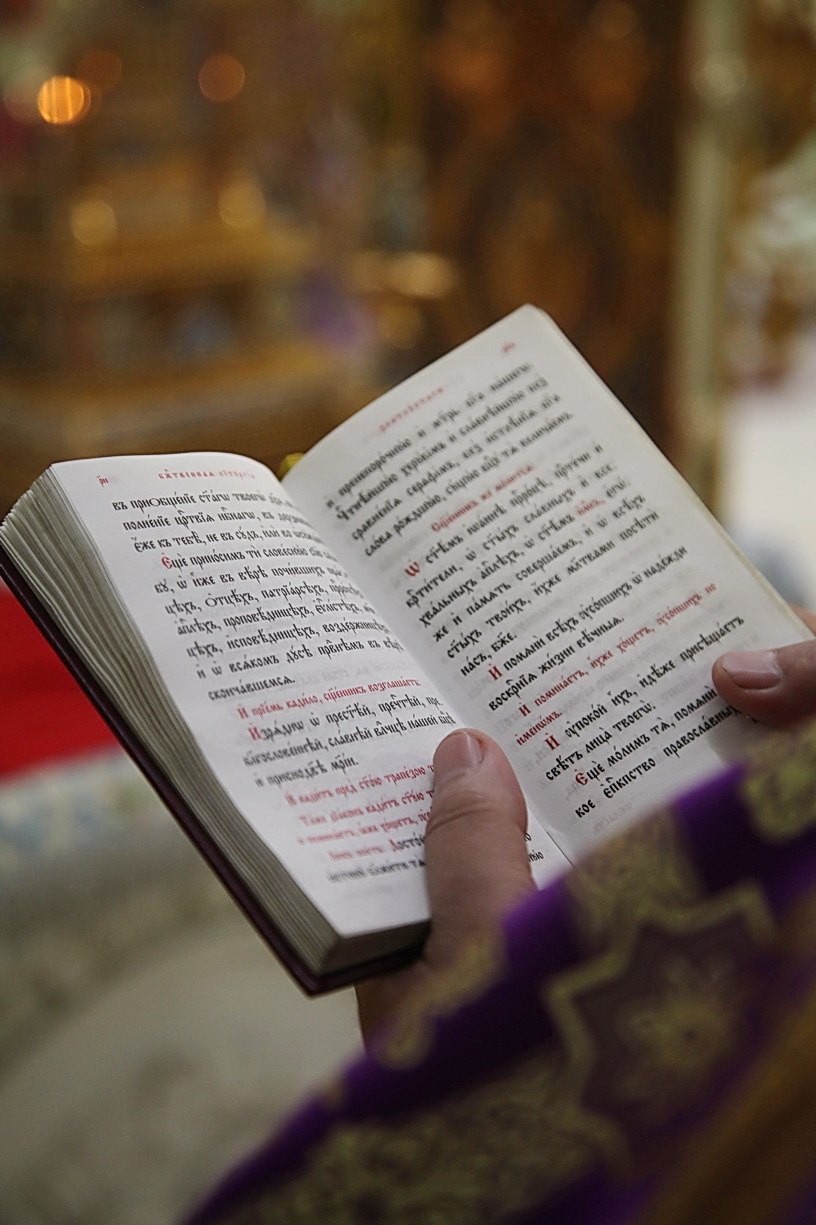 въ приѡбщенїе ст҃агѡ твоегѡ
полненїе црⷭ҇твїа нбⷭ҇нагѡ, въ
є҆́же къ тебѣ̀, не въ сꙋ́дъ, илѝ во
Є҆щѐ прино́симъ тѝ слове́снꙋю сїю̀
бꙋ, ѡ҆ и҆̀же въ вѣ́рѣ почи́вшихъ
цѣ́хъ, ѻ҆тцѣ́хъ, патрїа́рсѣхъ,
а҆пⷭ҇лѣхъ, проповѣ́дницѣхъ, є҆ѵⷢ҇лі́стѣхъ,
цѣхъ, и҆сповѣ́дницѣхъ, возде́ржницѣхъ
и҆ ѡ҆ всѧ́комъ дꙋ́сѣ првⷣнѣмъ въ вѣ́рѣ
сконча́вшемсѧ.
И҆ прїе́мъ кади́ло, сщ҃е́нникъ возглаша́етъ:
И҆зрѧ́днѡ ѡ҆ прест҃ѣ́й, пречⷭ҇тѣй, пре-
блгⷭ҇ве́ннѣй, сла́внѣй влⷣчцѣ на́шей бцⷣѣ
и҆ приснодв҃ѣ мр҃і́и.
И҆ кади́тъ пред̾ ст҃о́ю трапе́зою
Та́же дїа́конъ кади́тъ ст҃ꙋ́ю
и҆ помина́етъ, и҆̀хже хо́щетъ,
и҆ пренепоро́чнꙋю и҆ мт҃рь бг҃а на́шегѡ.
чⷭ҇тнѣ́йшꙋю херꙋві̑мъ и҆ сла́внѣйшꙋю без̾
сравне́нїѧ серафі̑мъ, без̾ и҆стлѣ́нїѧ бг҃а
сло́ва ро́ждшꙋю, сꙋ́щꙋю бцⷣꙋ тѧ̀ велича́емъ.
Сщ҃е́нникъ же мо́литсѧ:
Ѡ҆ ст҃ѣ́мъ і҆ѡа́ннѣ прⷪ҇ро́цѣ, прⷣте́чи и҆
крⷭ҇ти́тели, ѡ҆ ст҃ы́хъ сла́вныхъ и҆ все-
хва́льныхъ а҆пⷭ҇лѣхъ, ѡ҆ ст҃ѣ́мъ и҆м҃къ, є҆гѡ́-
же и҆ па́мѧть соверша́емъ, и҆ ѡ҆ всѣ́хъ
ст҃ы́хъ твои́хъ, и҆́хже мл҃твами посѣтѝ
на́съ, бж҃е.
И҆ помѧнѝ всѣ́хъ ᲂу҆со́пшихъ ѡ҆ наде́жди
воскрⷭ҇нїѧ жи́зни вѣ́чныѧ.
И҆ помина́етъ, и҆̀хже хо́щетъ, ᲂу҆со́пшихъ по
и҆мену́мъ.
И҆ ᲂу҆поко́й и҆̀хъ, и҆дѣ́же присѣща́етъ
свѣ́тъ лица̀ твоегѡ̀.
Є҆щѐ мо́лимъ тѧ̀, помѧнѝ
кое є҆пⷭ҇кпство правосла́вныхъ